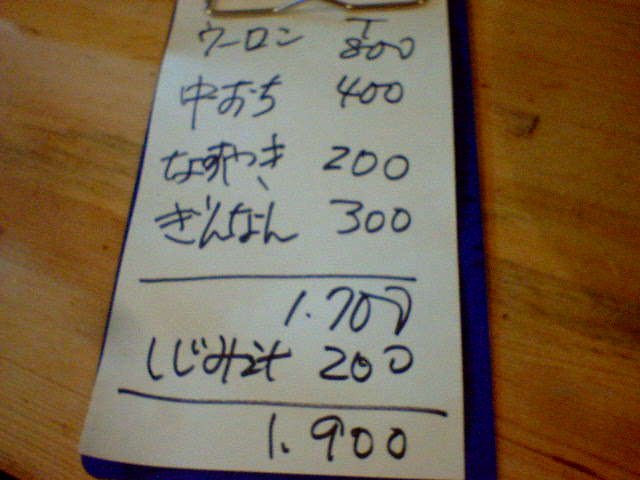 ウーロン 800
中おち 400
なすやき 200
ぎんなん 300
1.700
しじみ汁 200
1.900